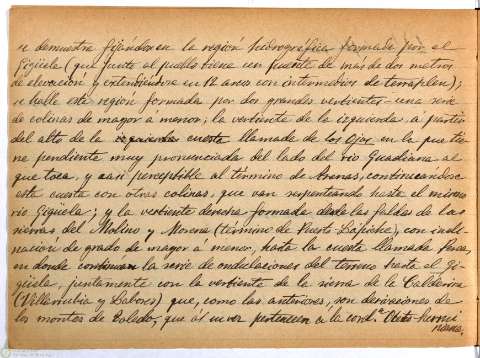 se demuestra fijándose en la región hidrográfica formada por el
Gigüela (que junto al pueblo tiene un puente de mas de dos metros
de elevación y extendiéndose en 12 arcos con intermedios de terraplen);
se halla esta región formada por dos grandes vertientes - una serie
de colinas de mayor a menor; la vertiente de la izquierda, a partir
del alto de la izquierda cuesta llamada de los Ojos en la que tie-
ne pendiente muy pronunciada del lado del rio Guadiana al
que toca, y casi perceptible al termino de Arenas, continuandose
esta cuesta con otras colinas, que van serpenteando hasta el mismo
rio Gigüela; y la vertiente derecha formada desde las faldas de las
sierras del Molino y Morena (término de Puerto Lápiche), con incli-
nación de grado de mayor á menor, hasta la cuesta llamada
en donde continuan la serie de ondulaciones del terreno hasta el Gi-
güela, juntamente con la vertiente de la sierra de la Calderina
(Villarrubia y Labores) que, como las anteriores, son derivaciones de
los montes de Toledo, que á su vez pertenecen á la cord.ª